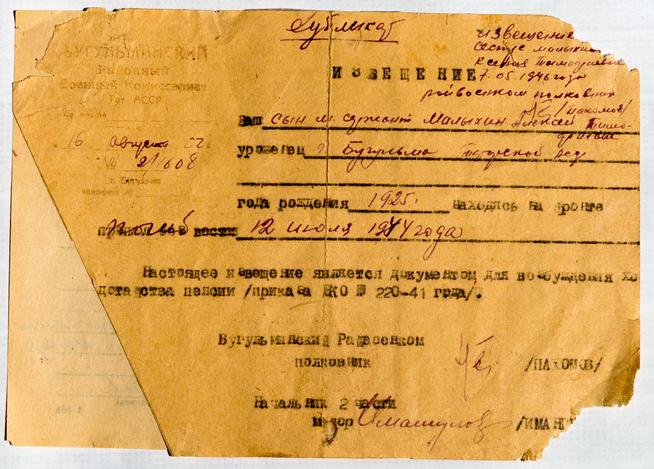 дубликат
извещение
сестре Малыхин
7.05.1946 года
райвоенком полковник
/Пахомов/
БУГУЛЬМИНСКИЙ
Районный
Военный Комиссариат
Тат АССР
16 августа
№ 2/608
г. Бугульма
ИЗВЕЩЕНИЕ
Ваш сын м. сержант Малыхин Алексей Тимо-
уроженец г. Бугульма Татарской
года рождения 1925г. находясь на фронте
погиб 12 июля 1944 года
Настоящее извещение является документом для возбуждения хо
датайства пенсии /приказ НКО № 220-41 года/.
Бугульминский Райвоенком
полковник /ПАХОМОВ/
Начальник 2 части
майор /ИМАН